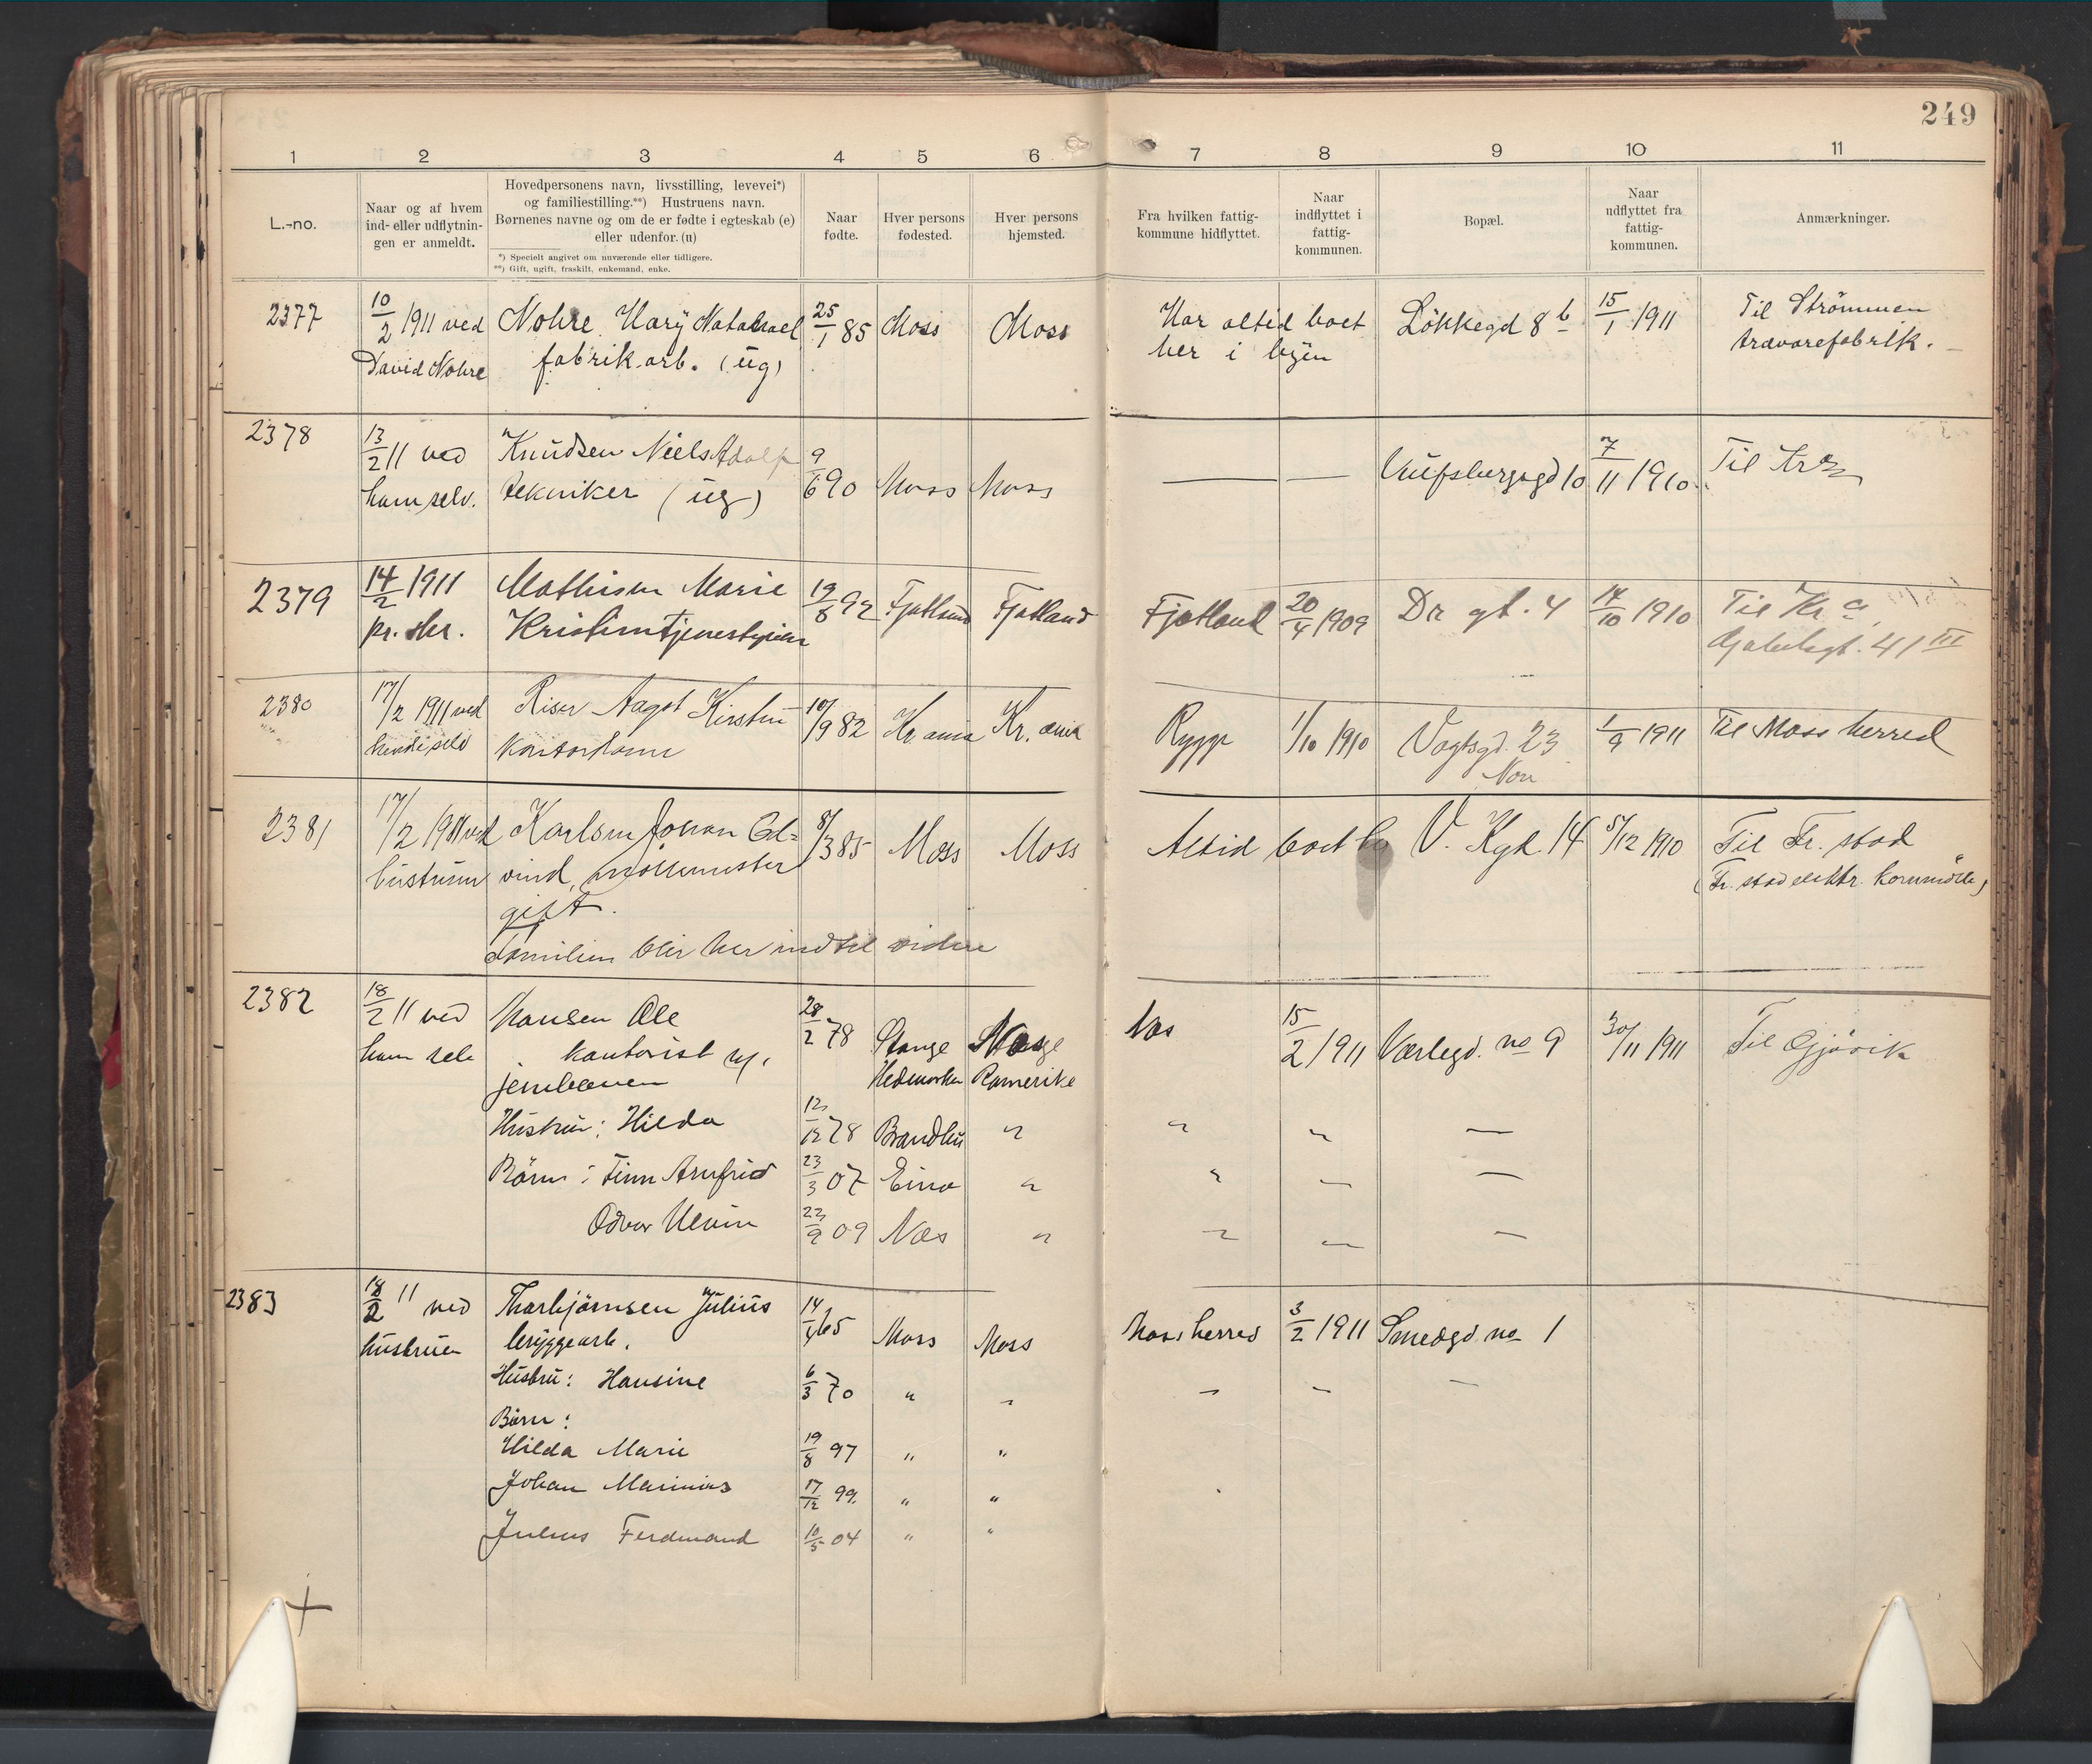 249
1 2 3 4 5 6 7 8 9 10 11
L.-no.
Naar og af hvem
ind- eller udflytnin-
gen er anmeldt.
Hovedpersonens navn, livsstilling, levevei*)
og familiestilling.**) Hustruens navn.
Børnenes navne og om de er fødte i egteskab (e)
eller udenfor. (u)
*) Specielt angivet om nuværende eller tidligere.
**) Gift, ugift, fraskilt, enkemand, enke.
Naar
fødte.
Hver persons
fødested.
Hver persons
hjemsted.
Fra hvilken fattig-
kommune hidflyttet.
Naar
indflyttet i
fattig-
kommunen.
Bopæl.
Naar
udflyttet fra
fattig-
kommunen.
Anmærkninger.
2377 10/2 1911 ved Nohre Harÿ Natanael 25/1 85 Moss Moss Har altid boet Løkkegd 8 b 15/1 1911 Til Strømmen
David Nohre fabrik.arb. (ug) her i byen trævarefabrik.
2378 13/2 11 ved Knudsen Niels Adolf 9/6 90 Moss Moss — — 10 7/11 1910 Til
ham selv. tekniker (ug)
2379 14/2 1911 Mathisen Marie 19/8 92 Fjotland Fjotland Fjotland 20/4 1909 Dr gt. 4 14/10 1910 Til Kr a
pr. skr. Kristine tjenestepige 41 III
2380 17/2 1911 ved Riser Aagot Kirstin 10/9 82 Kr. ania Kr. ania Rygge 1/10 1910 Vogtsgd. 23 1/9 1911 Til Moss herred
hende selv kontordame
2381 17/2 1911 ved Karlsen Johan Ed= 8/3 85 Moss Moss Altid boet her V. Kgt. 14 5/12 1910 Til Fr. stad
hustruen vind, møllemester (Fr. stad elektr. kornmølle)
gift.
Familien blir her indtil videre
2382 18/2 11 ved Hansen Ole 28/2 78 Stange Næs 15/2 1911 Værlegd. no 9 30/11 1911 Til Gjøvik
ham selv kontorist v.
jernbanen Hedmarken Romerike
Hustru: Hilda 12/12 78 Brandbu " " " —
Børn: Finn Arnfrid 23/3 07 Eina " " — —
Odvar 22/9 09 Næs " " — —
2383 18/2 11 ved Thorbjørnsen Julius 14/4 65 Moss Moss Moss herred 3/2 1911 Smedgd no 1
hustruen bryggearb.
Hustru: Hansine 6/3 70 " " — — —
Børn:
Hilda Marie 19/8 97 " "
Johan Marinius 17/12 99. " "
Julius Ferdinand 10/5 04 " "